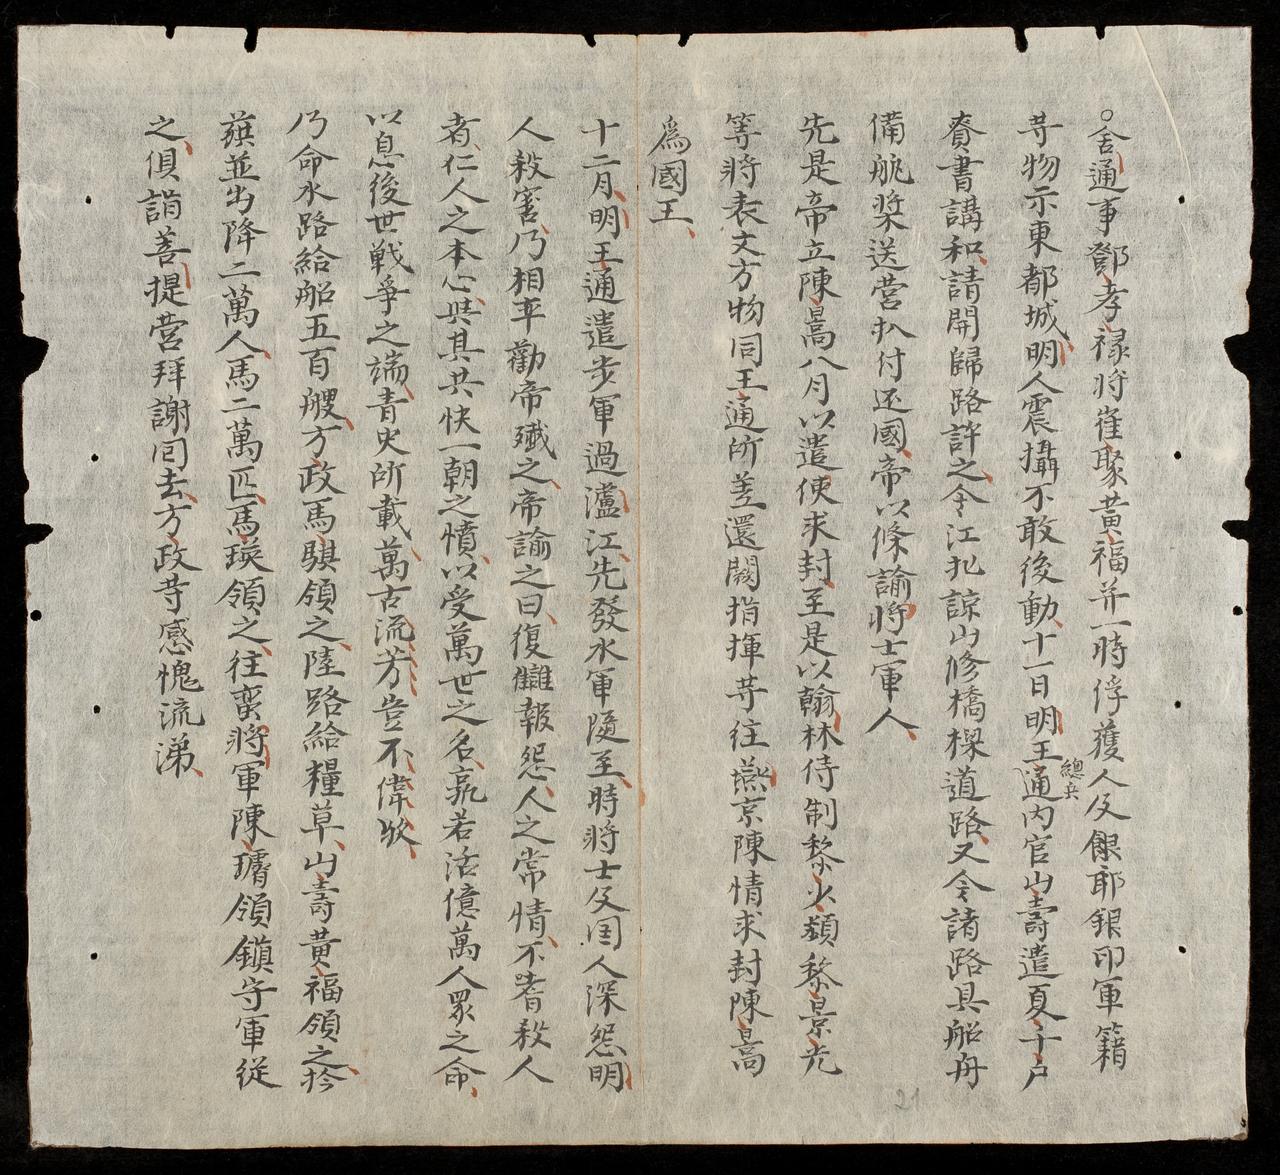 ○舍通事鄧孝祿將崔聚黃福并一時俘獲人及銀耶銀印軍籍
䓁物示東都城明人震攝不敢後動十一日明總兵王通內官山壽遣夏千户
賫書講和請開歸路許之令江北諒山修橋樑道路又令諸路具船舟
備舵槳送营扒付还國帝以條諭將士軍人
先是帝立陳暠八月以遣使求封至是以翰林侍制黎少頴黎景光
等將表文方物同王通所差還闕指揮䓁往燕京陳情求封陳暠
爲國王
十二月明王通遣步軍過瀘江先發水軍隨至時將士及囯人深怨明
人殺害乃相率勸帝殲之帝諭之曰復讎報怨人之常情不嗜殺人
者仁人之本心與其共快一朝之憤以受萬世之名孰若活億萬人眾之命
以息後世戰爭之端青史所載萬古流芳豈不偉𢼌
乃命水路給船五百艘方政馬騏領之陸路給糧草山壽黃福領之於
蘱並出降二萬人馬二萬匹馬瑛領之往蛮將軍陳璿領鎮守軍従
之俱詣菩提营拜謝囘去方政䓁感愧流涕
21